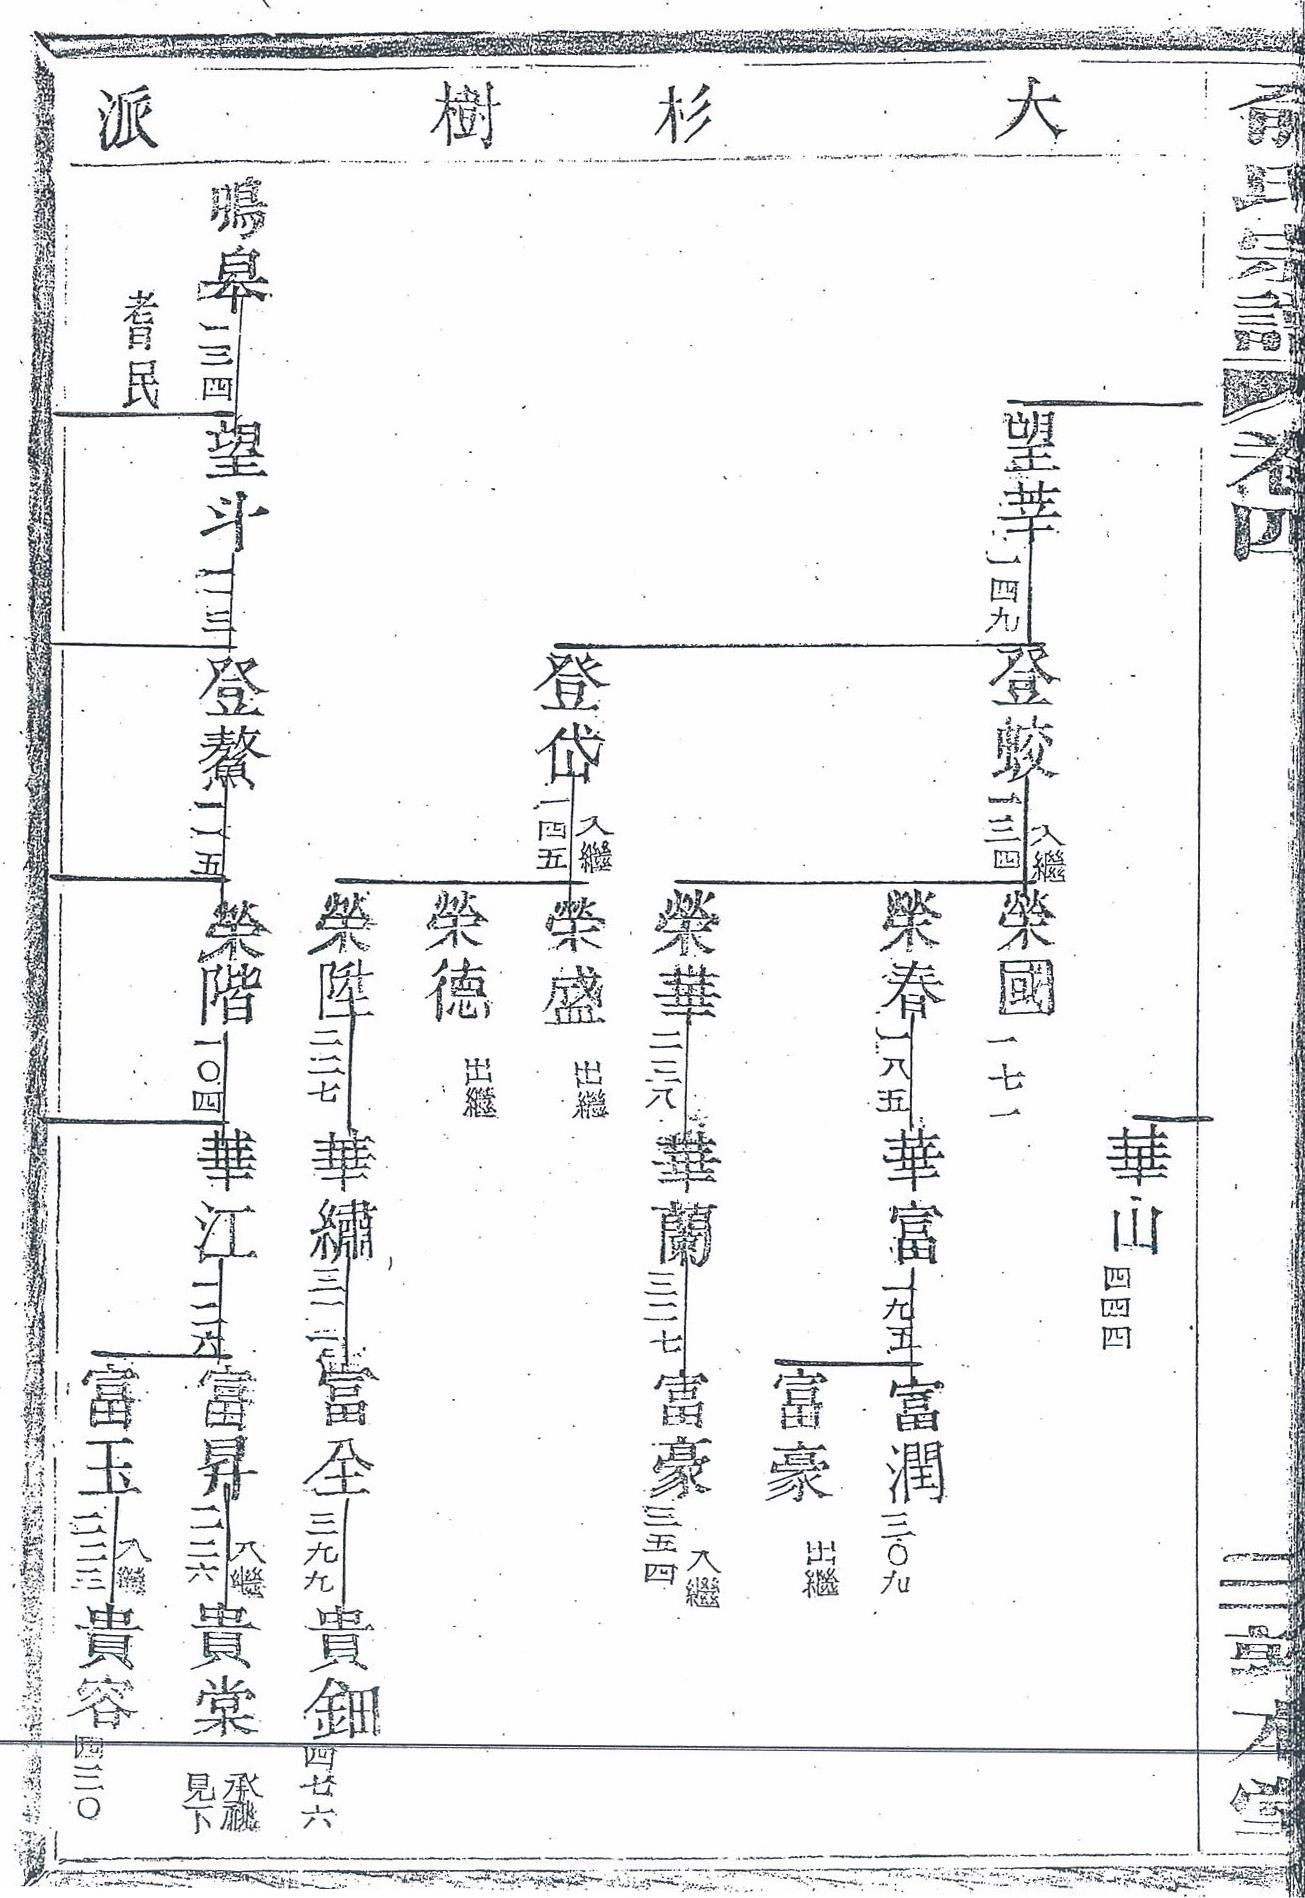 俞氏宗譜 卷四
敦本堂
大杉樹派
華山 四四四
望莘 一四九
登蛟 一三四 入繼
榮國 一七一
榮春 一八五
華富 一九五
富潤 三〇九
富豪 出繼
榮華 二三八
華蘭 三二七
富豪 三五四 入繼
登岱 一四五 入繼
榮盛 出繼
榮德 出繼
榮陞 二二七
華繡 三一一
富全 三九九
貴鈿 四廿六
鳴皋 一三四
望斗 一一三
登鰲 一一五
榮階 一〇四
華江 一二六
富昇 二二六 入繼
貴棠 承祧見下
富玉 二二三 入繼
貴容 四三〇
耆民